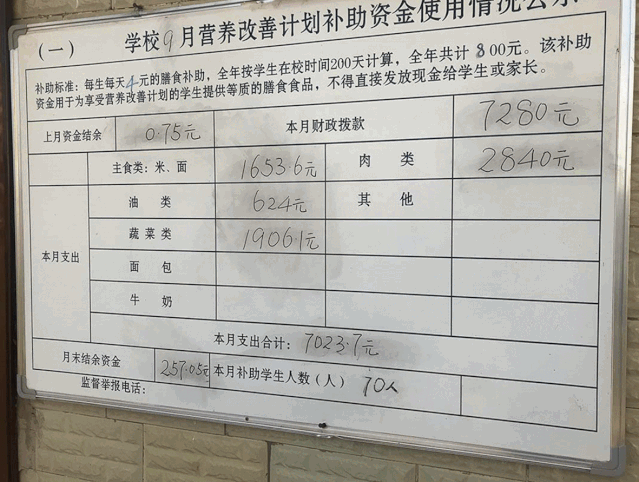 (一) 学校9月营养改善计划补助资金使用情况公示
补助标准：每生每天4元的膳食补助，全年按学生在校时间200天计算，全年共计800元。该补助
资金用于为享受营养改善计划的学生提供等质的膳食食品，不得直接发放现金给学生或家长。
上月资金结余 0.75元 本月财政拨款 7280元
主食类：米、面 1653.6元 肉 类 2840元
油 类 624元 其 他
蔬菜类 1906.1元
本月支出 面 包
牛 奶
本月支出合计：7023.7元
月末结余资金 257.05元 本月补助学生人数（人） 70人
监督举报电话：